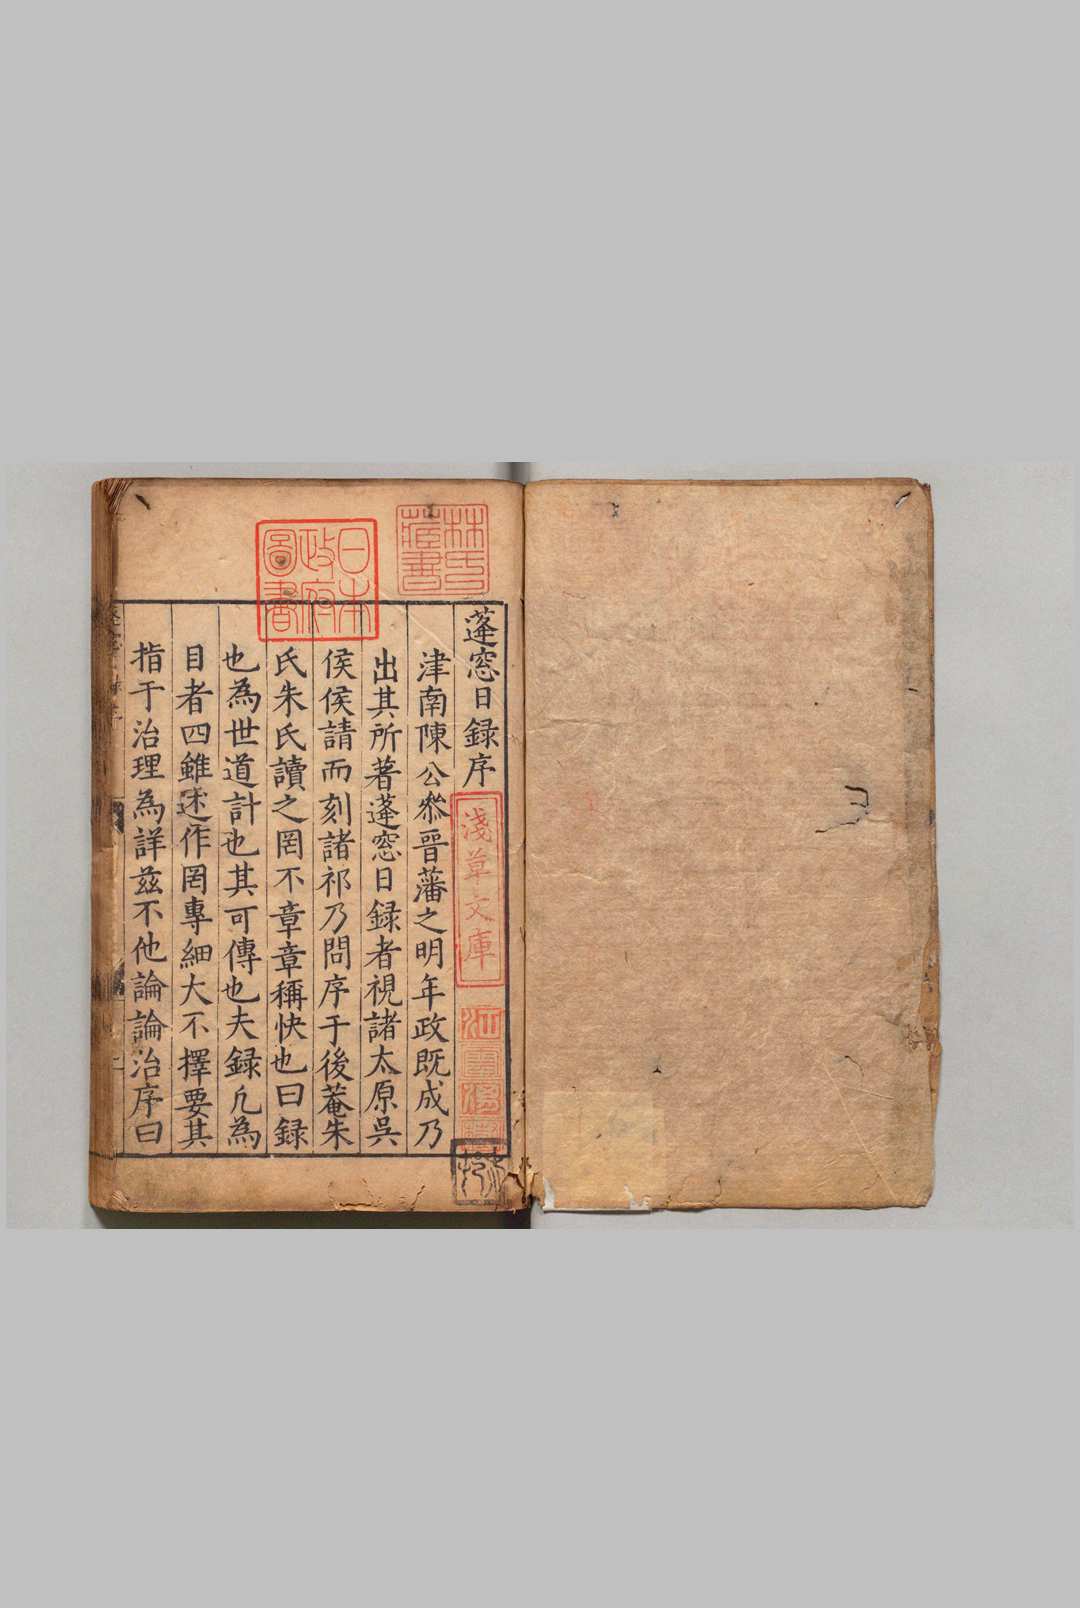 蓬窓日録序
津南陳公叅晉藩之明年政既成乃
出其所著蓬窓日録者視諸太原吳
侯侯請而刻諸祁乃問序于後菴朱
氏朱氏讀之罔不章章稱快也曰録
也為世道計也其可傳也夫録凢為
目者四雖述作罔專細大不擇要其
指于治理為詳兹不他論論治序曰
林氏藏書
日本政府圖書
淺草文庫